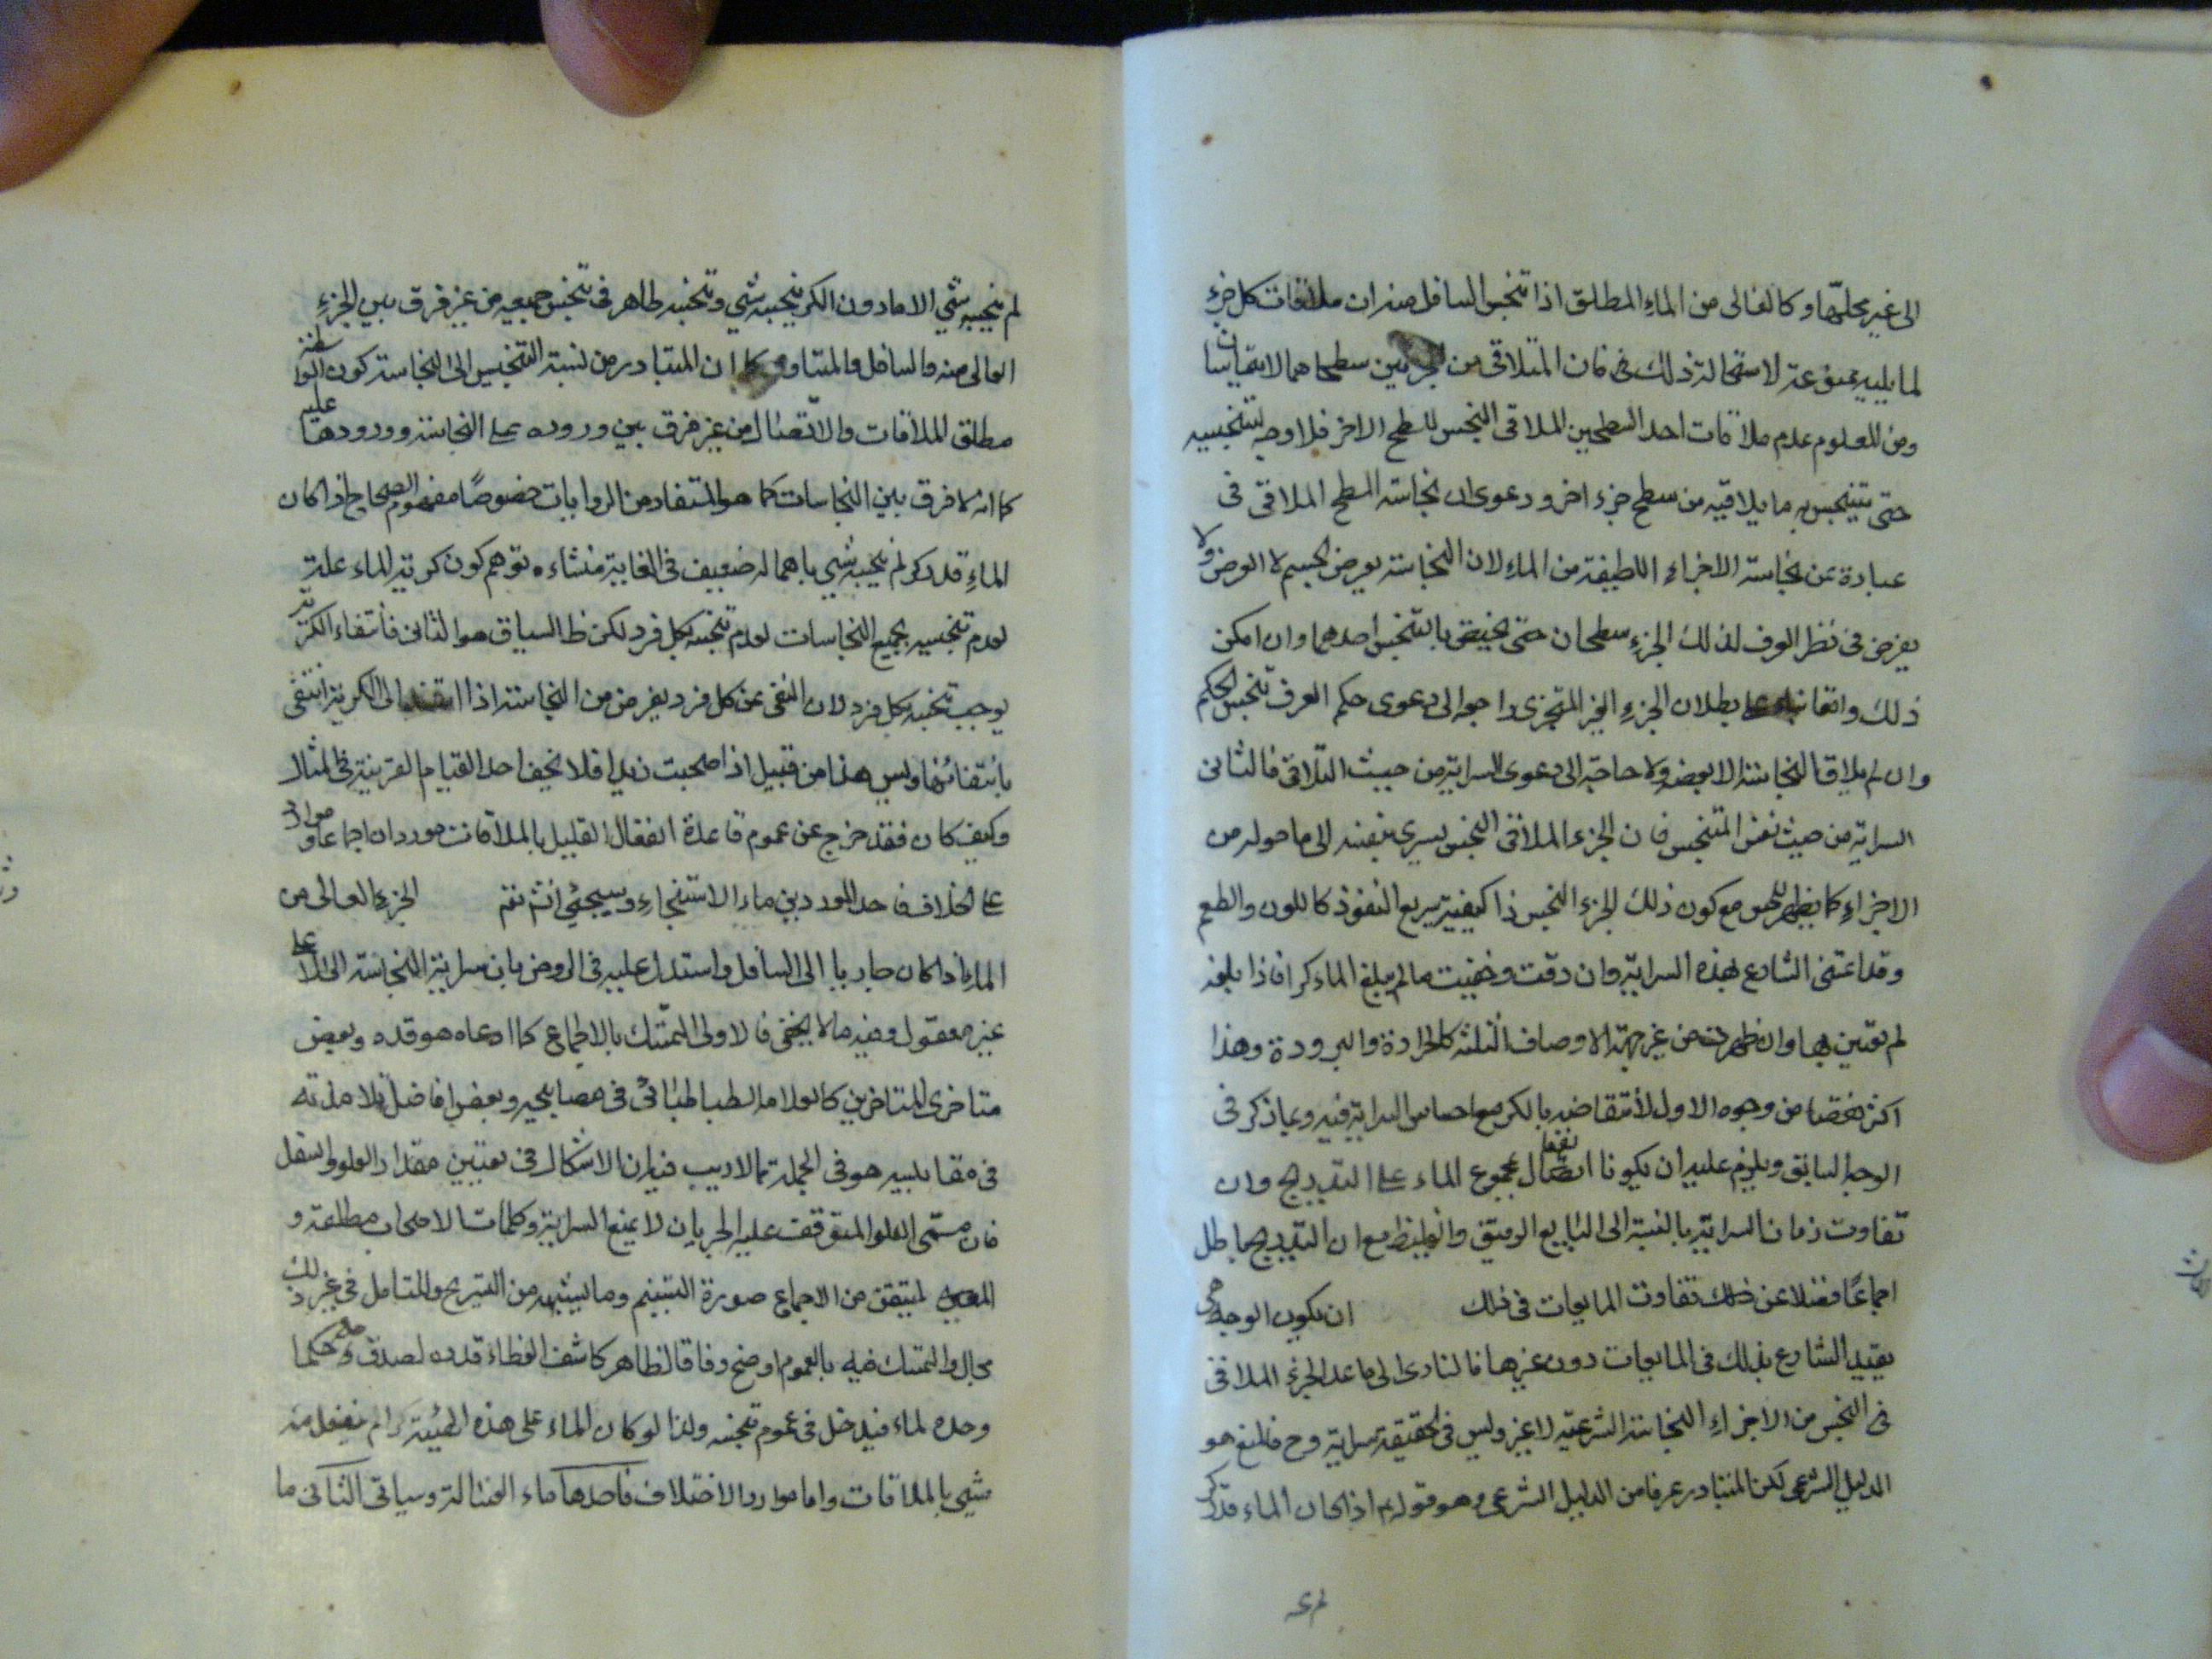 الى غير محلها وكالعالى من الماء المطلق اذا تنجس السافل منه ان ملاقات كل جزء
لما يليه ممنوعة لاستحالة ذلك فى فان المتلاقى من الجزئين سطحاهما لا يتماسان
ومن المعلوم عدم ملاقات احد السطحين الملاقى النجس للسطح الاخر فلا وجه لتنجسيه
حتى يتنجس به ما يلاقيه من سطح جزء اخر ودعوى ان نجاسة السطح الملاقى فى
عبارة عن نجاسة الاجزاء اللطيفة من الماء لان النجاسة يعرض الجسم لا العرض ولا
يفرض فى نظر العرف لذلك الجزء سطحان حتى يختص بالتنجس احدهما وان امكن
ذلك واقعا بناء على بطلان الجزء الغير المتجزى راجع الى دعوى حكم العرف تنجس الحكم
وان لم يلاق النجاسة الا بعضه ولا حاجة الى دعوى السراية من حيث التلاقى فالثانى
السراية من حيث نفس المتنجس فان الجزء الملاقى النجس يسرى بنفسه الى ما حوله من
الاجزاء كما يظهر للحس مع كون ذلك الجزء النجس ذا كيفية سريع النفوذ كاللون والطعم
وقد اعتنى الشارع بهذه السراية وان دقت وخفيت ما لم يبلغ الماء كرا فاذا بلغه
لم يعتن بها وان ظهرت من غير جهة الاوصاف الثلثة كالحرارة والبرودة وهذا
اكثر نقضا من وجوه الاول لانتقاضه بالكر مع احساس السراية فيه وبما ذكر فى
الوجه السابق ويلزم عليه ان يكون انفعال مجموع الماء على التدريج وان
تفاوت زمان السراية بالنسبة الى المايع الرقيق والغليظ مع ان التدريج باطل
اجماعا فضلا عن ذلك تفاوت المايعات فى ذلك ان يكون الوجه هى
تعبد الشارع بذلك فى المايعات دون غيرها فالسارى الى ما عدا الجزء الملاقى
فى النجس من الاجزاء النجاسة الشرعية لا غير وليس فى الحقيقة سراية وح فالمتبع هو
الدليل الشرعى لكن المتبادر عرفا من الدليل الشرعى وهو قوله اذا كان الماء قدر كر
لم ينجسه شئ الا ما دون الكر ينجسه شئ وتنجسه ظاهر فى تنجس جميعه من غير فرق بين الجزء
العالى منه والسافل والمتساوى كما ان المتبادر من نسبة التنجيس الى النجاسة كون
مطلق الملاقات والاتصال من غير فرق بين وروده على النجاسة وورودها عليه
كما انه لا فرق بين النجاسات كما هو المستفاد من الروايات خصوصا مفهوم الصحاح اذا كان
الماء قدر كر لم ينجسه شئ باهماله ضعيف فى الغاية منشاءه توهم كون كرية الماء علة
لعدم تنجسيه بجميع النجاسات لعدم تنجسه بكل فرد لكن ظ السياق هو الثانى فانتفاء الكرية
يوجب تنجسه بكل فرد لان النفى عن كل فرد يفرض من النجاسة اذا استند الى الكرية انتفى
بانتفائها وليس هذا من قبيل اذا صحبت زيدا فلا تخف احدا لقيام القرينة فى المثال
وكيف كان فقد خرج عن عموم قاعدة انفعال القليل بالملاقات موارد اجماعا وموارد
على الخلاف فاحد الموردين ماء الاستنجاء وسيجئ انش تع الجزء العالى من
الماء اذا كان جاريا الى السافل واستدل عليه فى الروض بان سراية النجاسة الى الاعلى
غير معقول وفيه ما لا يخفى فالاولى التمسك بالاجماع كما ادعاه هو قده وبعض
متاخرى المتاخرين كالعلامة الطباطبائى فى مصابيحه وبعض افاضل تلامذته
فى مقابيسه هو فى الجملة مما لا ريب فيه ان الاشكال فى تعيين مقدار العلو والسفل
فان مسمى العلو المتوقف عليه الجريان لا يمنع السراية وكلمات الاصحاب مطلقة و
المتيقن من الاجماع صورة التسنيم وما يشبهه من التسريح وللتامل فى غير ذلك
مجال والتمسك فيه بالعموم اوضح وفاقا لظاهر كاشف الغطاء قده لصدق
وحده لماء فيدخل فى عموم تنجسه ولذا لو كان الماء على هذه الهيئة كرا لم ينفعل منه
شئ بالملاقات واما موارد الاختلاف فاحدها ماء الغسالة وسياتى الثانى ما